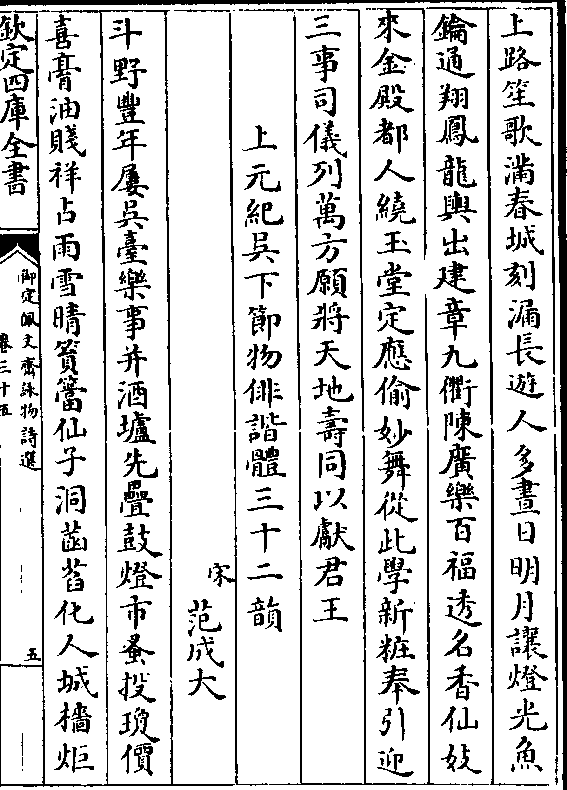 上路笙歌滿春城刻漏長遊人多晝日明月讓燈光魚
鑰通翔鳳龍輿出建章九衢陳廣樂百福透名香仙妓
來金殿都人繞玉堂定應偷妙舞從此學新粧奉引迎
三事司儀列萬方願將天地壽同以獻君王
上元紀吳下節物俳諧體三十二韻
宋 范成大
斗野豐年屢吳臺樂事并酒壚先疊鼓燈市蚤投瓊價
喜膏油賤祥占雨雪晴篔簹仙子洞菡萏化人城檣炬
欽定四庫全書
御定佩文齋詠物詩選
卷三十五
五